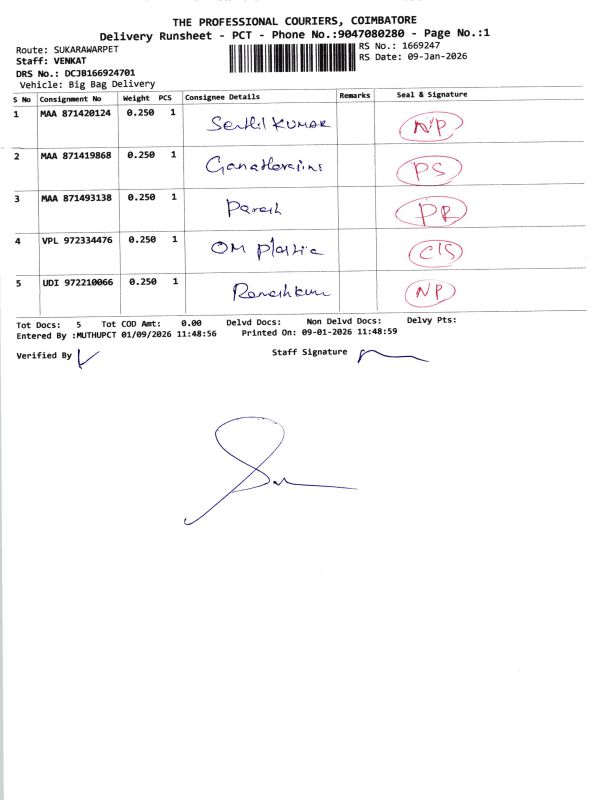 THE PROFESSIONAL COURIERS, COIMBATORE
Delivery Runsheet - PCT - Phone No.:9047080280 - Page No.:1
Route: SUKARAWARPET RS No.: 1669247
Staff: VENKAT RS Date: 09-Jan-2026
DRS No.: DCJB166924701
Vehicle: Big Bag Delivery
S No Consignment No Weight PCS Consignee Details Remarks Seal & Signature
1 MAA 871420124 0.250 1 Senthil KUMAR N/P
2 MAA 871419868 0.250 1 PS
3 MAA 871493138 0.250 1 Paresh PR
4 VPL 972334476 0.250 1 OM plastic C/S
5 UDI 972210066 0.250 1 NP
Tot Docs: 5 Tot COD Amt: 0.00 Delvd Docs: Non Delvd Docs: Delvy Pts:
Entered By :MUTHUPCT 01/09/2026 11:48:56 Printed On: 09-01-2026 11:48:59
Verified By Staff Signature